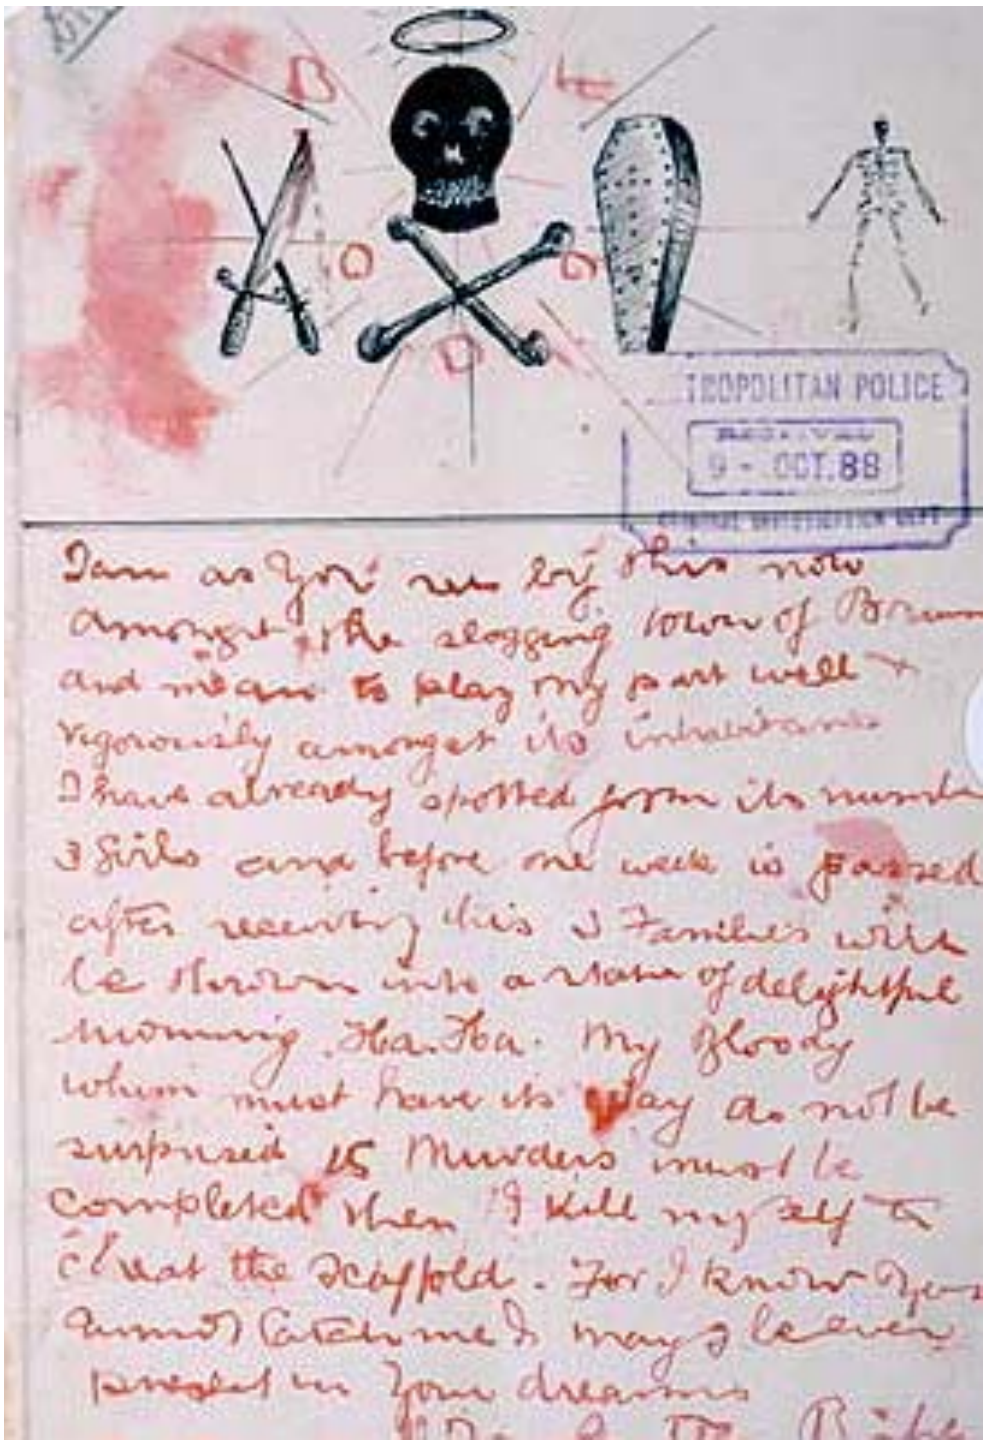 B L
O O
D
TROPOLITAN POLICE
RECEIVED
9 - OCT.88
CRIMINAL INVESTIGATION DEPT
I am as you see by this now
amongst the slogging town of Brum
and mean to play my part well &
vigorously amongst its inhabitants
I have already spotted from its number
3 Girls and before one week is passed
after receiving this 3 Families will
be thrown into a state of delightful
mourning. Ha. Ha. My Bloody
whim must have its way do not be
surprised 15 Murders must be
completed then I kill myself to
cheat the scaffold. For I know you
cannot Catch me & may I be ever
present in your dreams